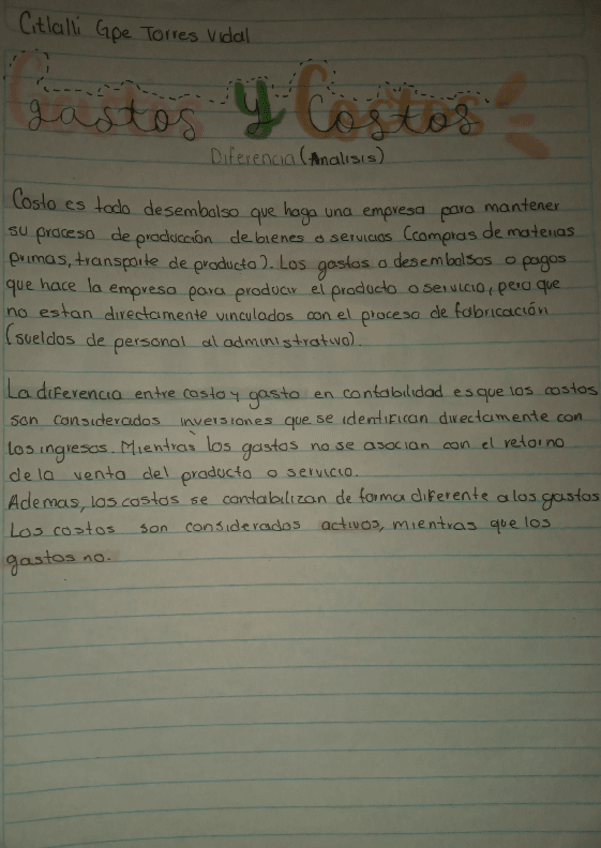 Citlalli Gpe Torres Vidal
gastos y Costos
Diferencia (Analisis)
Costo es todo desembolso que haga una empresa para mantener
su proceso de producción de bienes o servicios (compras de materias
primas, transporte de producto). Los gastos o desembolsos o pagos
que hace la empresa para producir el producto o servicio, pero que
no estan directamente vinculados con el proceso de fabricación
(sueldos de personal al administrativo).
La diferencia entre costo y gasto en contabilidad es que los costos
son considerados inversiones que se identifican directamente con
los ingresos. Mientras los gastos no se asocian con el retorno
de la venta del producto o servicio.
Ademas, los costos se contabilizan de forma diferente a los gastos
Los costos son considerados activos, mientras que los
gastos no.